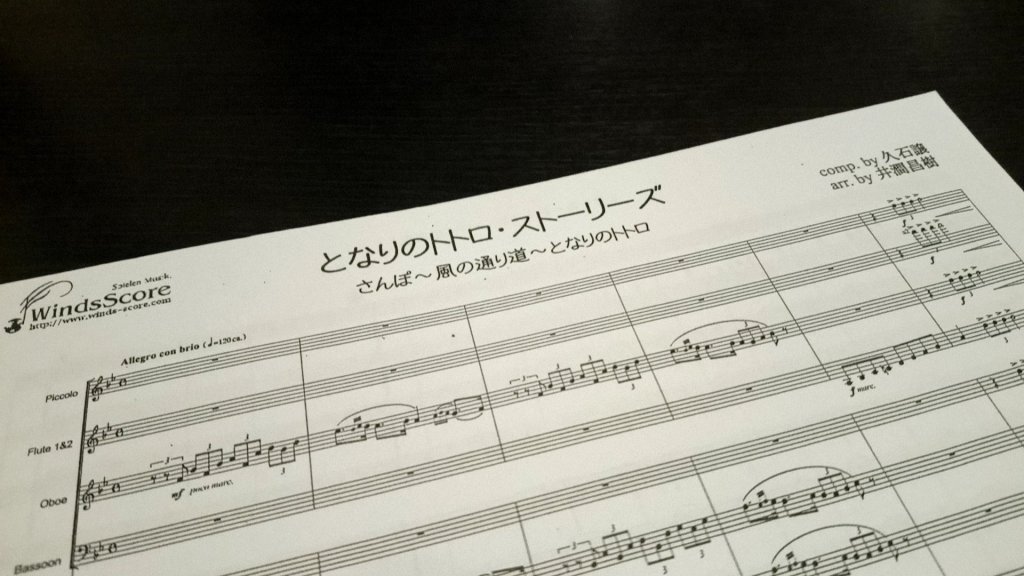 comp. by 久石譲
arr. by 井澗昌樹
となりのトトロ・ストーリーズ
さんぽ～風の通り道～となりのトトロ
Spielen Musik.
WindsScore
http://www.winds-score.com
Allegro con brio (♩=120ca.)
Piccolo
Flute 1&2
Oboe
mf poco marc.
f marc.
Bassoon